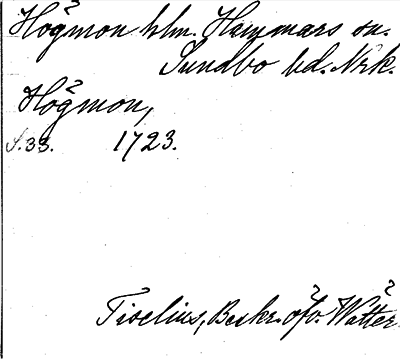 Högmon hlm. Hammars sn.
Sundbo hd. Nrk.
Högmon,
S. 33. 1723.
Tiselius, Beskr. öfv. Wätter